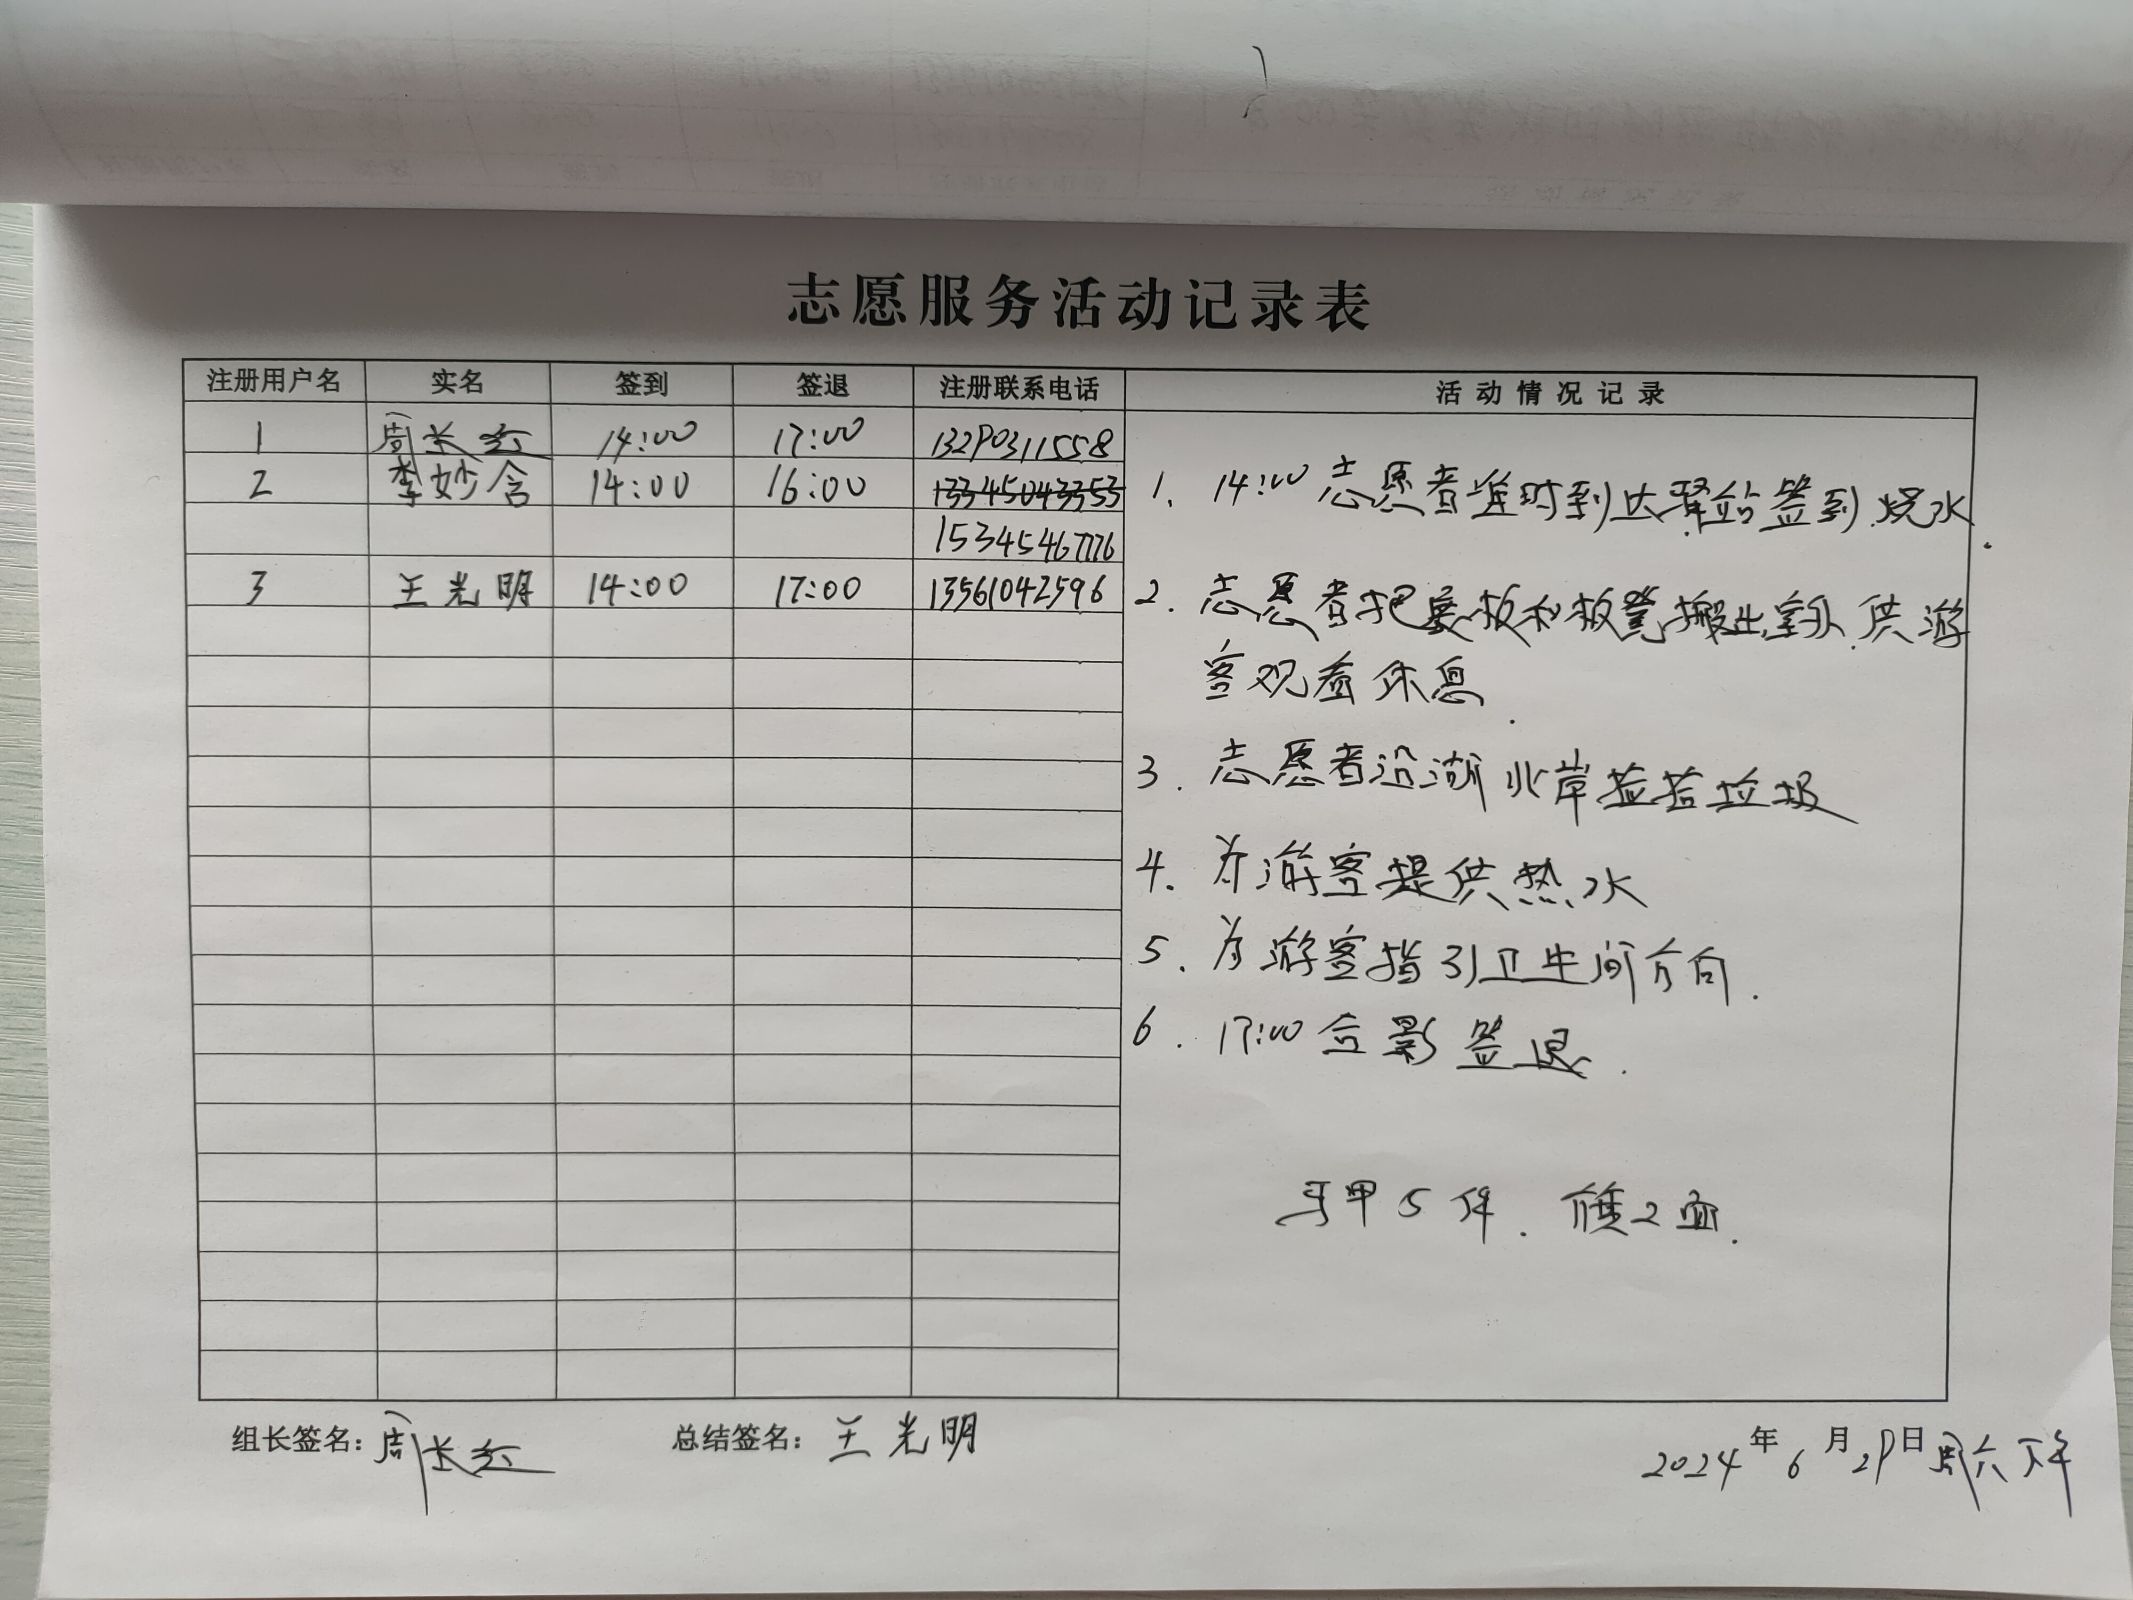 志愿服务活动记录表
注册用户名 实名 签到 签退 注册联系电话 活动情况记录
1 周长云 14:00 17:00 13290311558
2 李妙含 14:00 16:00 13345043353
15345467776
3 王光明 14:00 17:00 13561042596
1. 14:00 志愿者准时到达驿站签到.烧水.
2. 志愿者把展板和板凳搬出室外.供游
客观看休息.
3. 志愿者沿湖北岸捡拾垃圾
4. 为游客提供热水
5. 为游客指引卫生间方向.
6. 17:00合影签退.
马甲5件. 2面.
组长签名: 周长云 总结签名: 王光明 2024年6月29日周六下午